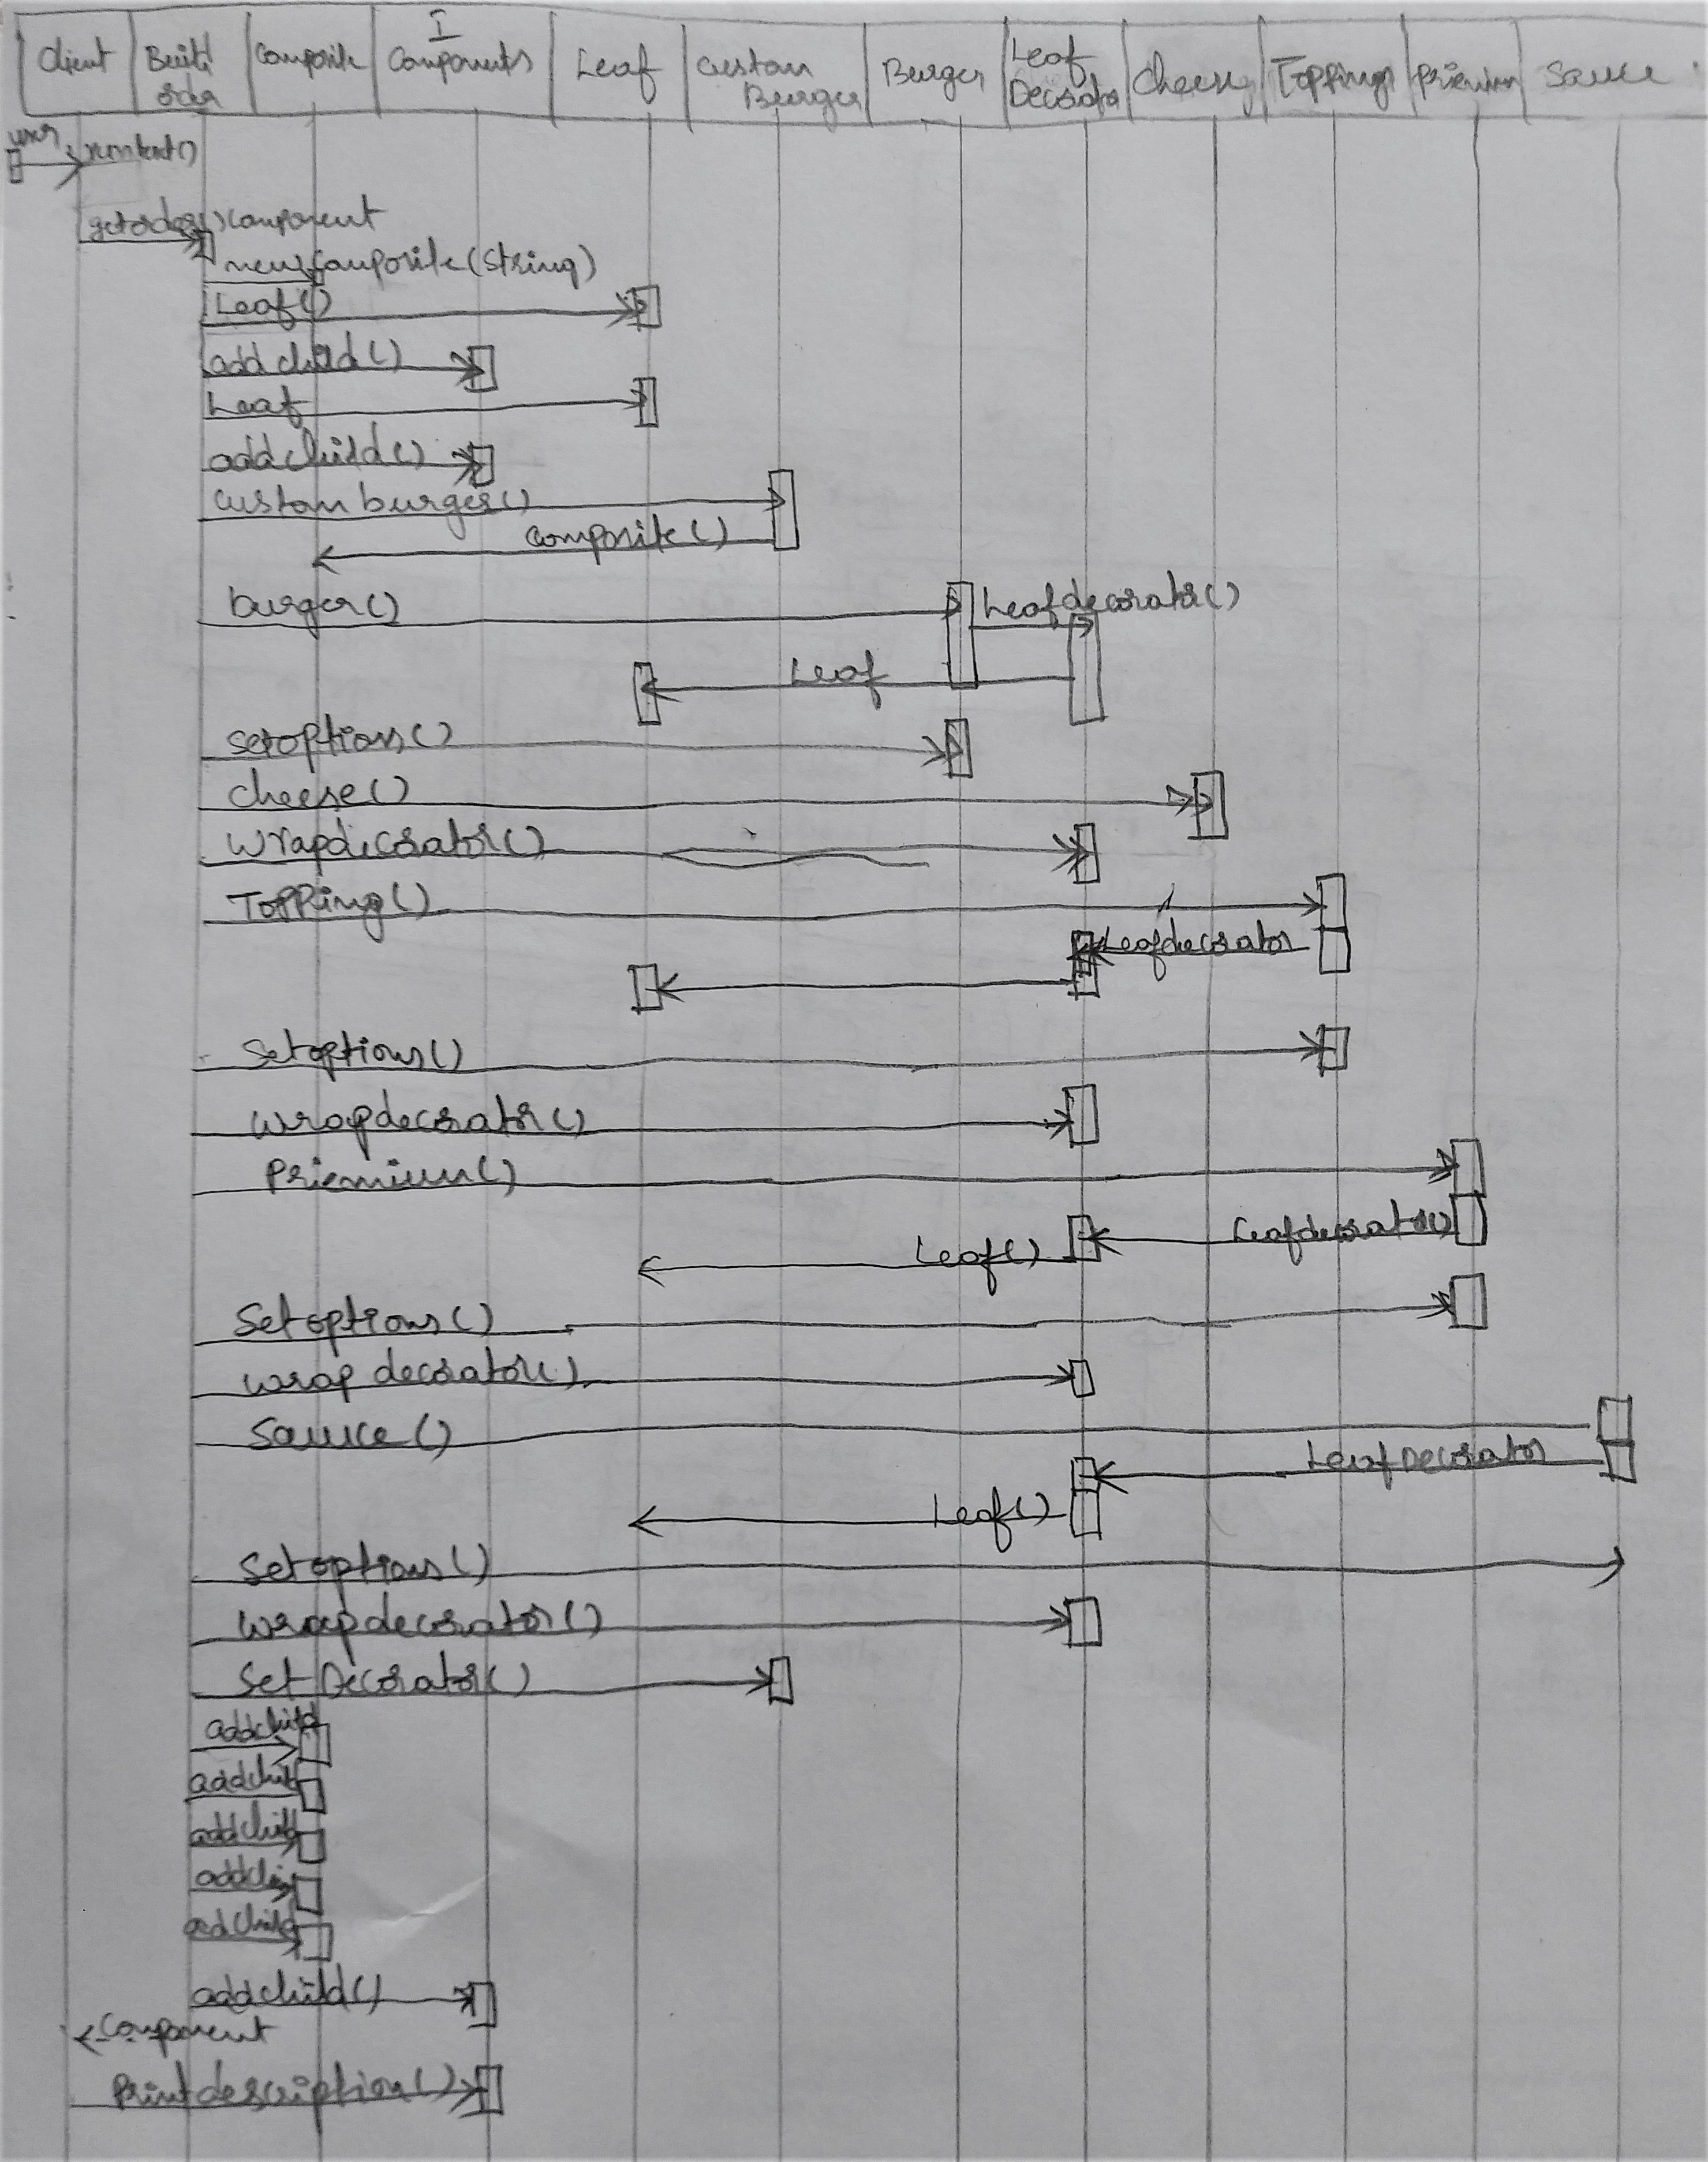 Client
Build
order
Composite
I
Components
Leaf
Custom
Burger
Burger
Leaf
Decorator
Cheese
Toppings
Priemium
Sauce
user
runtest()
getorder() component
new Composite(String)
Leaf()
add child()
Leaf
add child()
custom burger()
composite()
burger()
Leafdecorator()
Leaf
setoptions()
cheese()
wrapdecorator()
Topping()
Leafdecorator
Setoptions()
wrapdecorator()
Priemium()
Leafdecorator()
Leaf()
Setoptions()
wrap decorator()
Sauce()
Leaf Decorator
Leaf()
Setoptions()
wrapdecorator()
Set Decorator()
addchild
addchild
addchild
addchild
addchild
addchild()
Component
Printdescription()